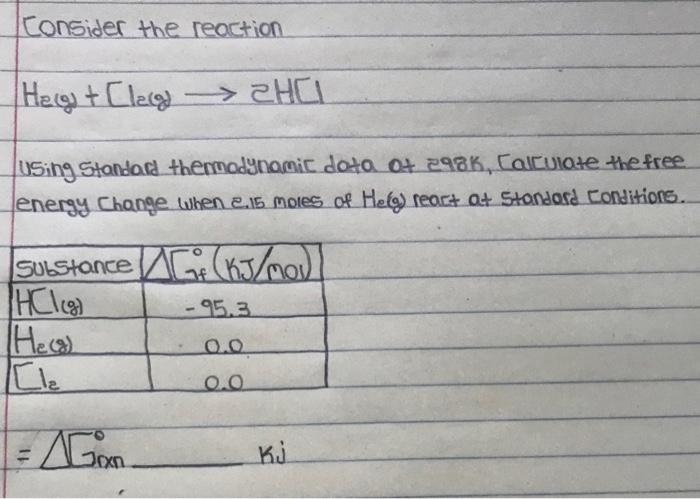 Consider the reaction
H2(g) + Cl2(g) → 2HCl
Using standard thermodynamic data at 298K, Calculate the free
energy change when 2.15 moles of H2(g) react at standard conditions.
Substance ΔG°f (KJ/mol)
HCl(g) -95.3
H2(g) 0.0
Cl2 0.0
= ΔG°rxn ______ Kj